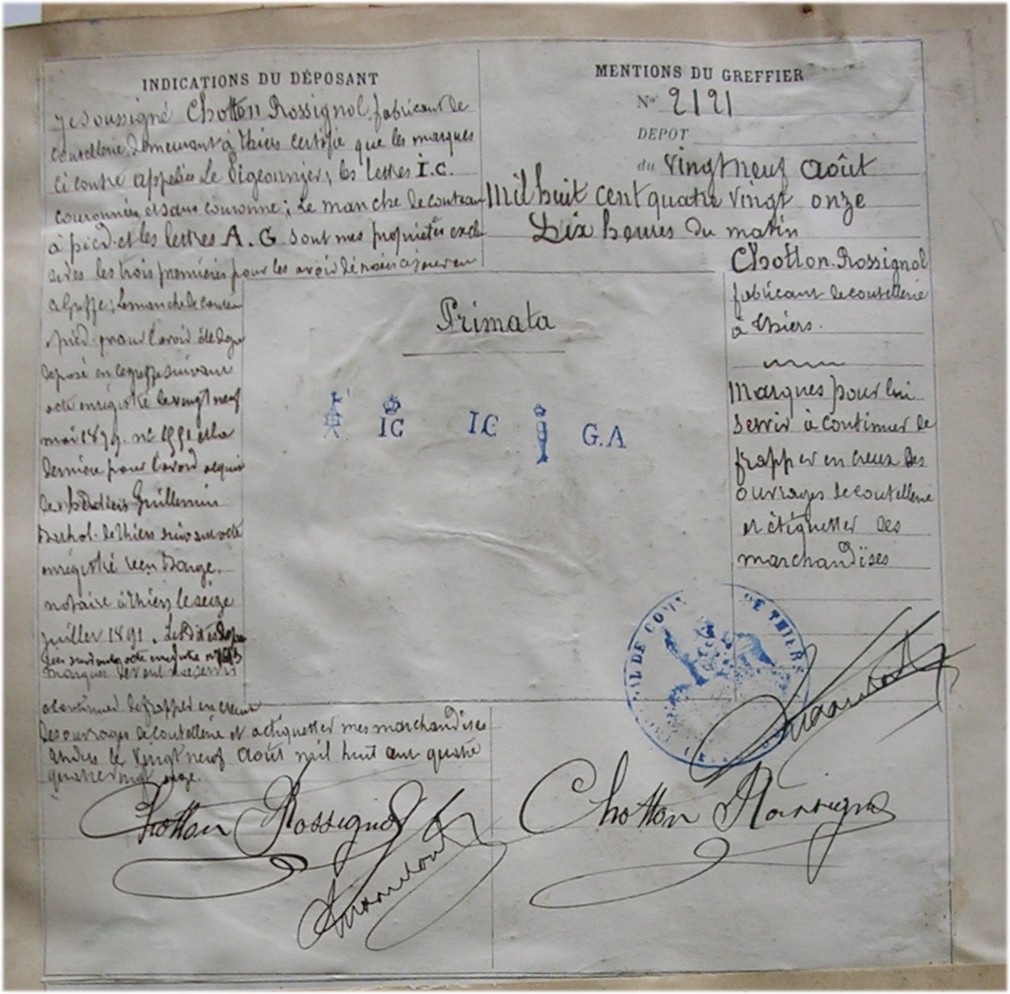 INDICATIONS DU DÉPOSANT
Je soussigné Chotton Rossignol, fabricant de
coutellerie, demeurant à Thiers certifie que les marques
ci contre appelées Le Pigeonnier, les lettres I.C.
couronnées et sans couronne; Le manche de couteau
à pied et les lettres A.G sont mes propriétés exclu
sives les trois premières pour les avoir
au Greffe; le manche de couteau
à pied pour l'avoir
déposé en le greffe suivant
acte enregistré le vingt neuf
mai 1879. nº et la
dernière pour l'avoir acquise
de Guillemin
de Thiers suivant acte
enregistré reçu Barge,
notaire à Thiers le seize
juillet 1891.
marques
à continuer de frapper en creux
des ouvrages de coutellerie et à étiquetter mes marchandises
Thiers le vingt neuf août mil huit cent quatre
quatre vingt onze.
MENTIONS DU GREFFIER
Nº 2121
DEPOT
du vingt neuf Août
Mil huit cent quatre vingt onze
Dix heures du matin
Chotton-Rossignol
fabricant de coutellerie
à Thiers.
Marques pour lui
servir à continuer de
frapper en creux des
ouvrages de coutellerie
et étiquetter des
marchandises
Primata
IC IC G.A
DE COM DE THIERS
Chotton Rossignol
Chotton Rossignol